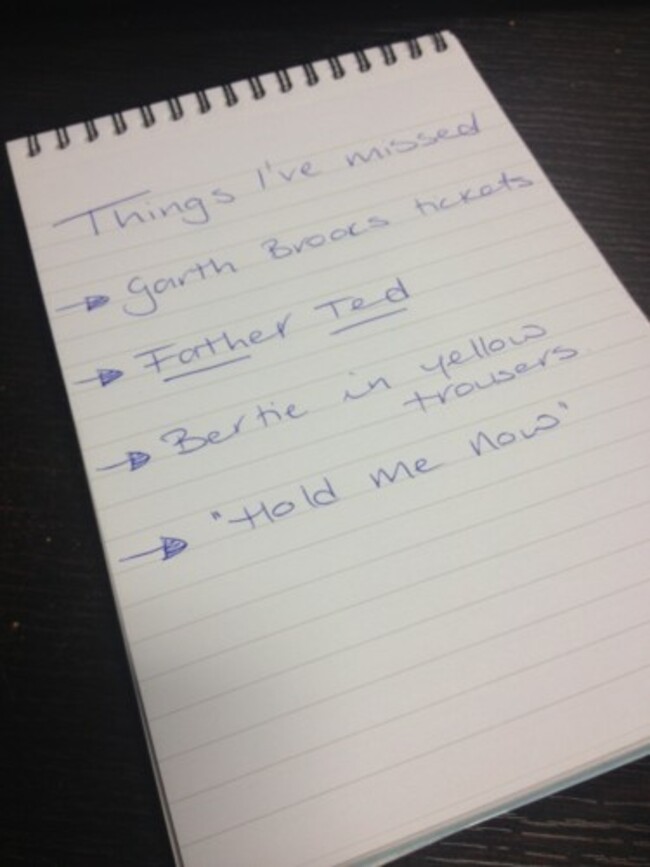 Things I've missed
→ Garth Brooks tickets
→ Father Ted
→ Bertie in yellow
trousers
→ "Hold me now"